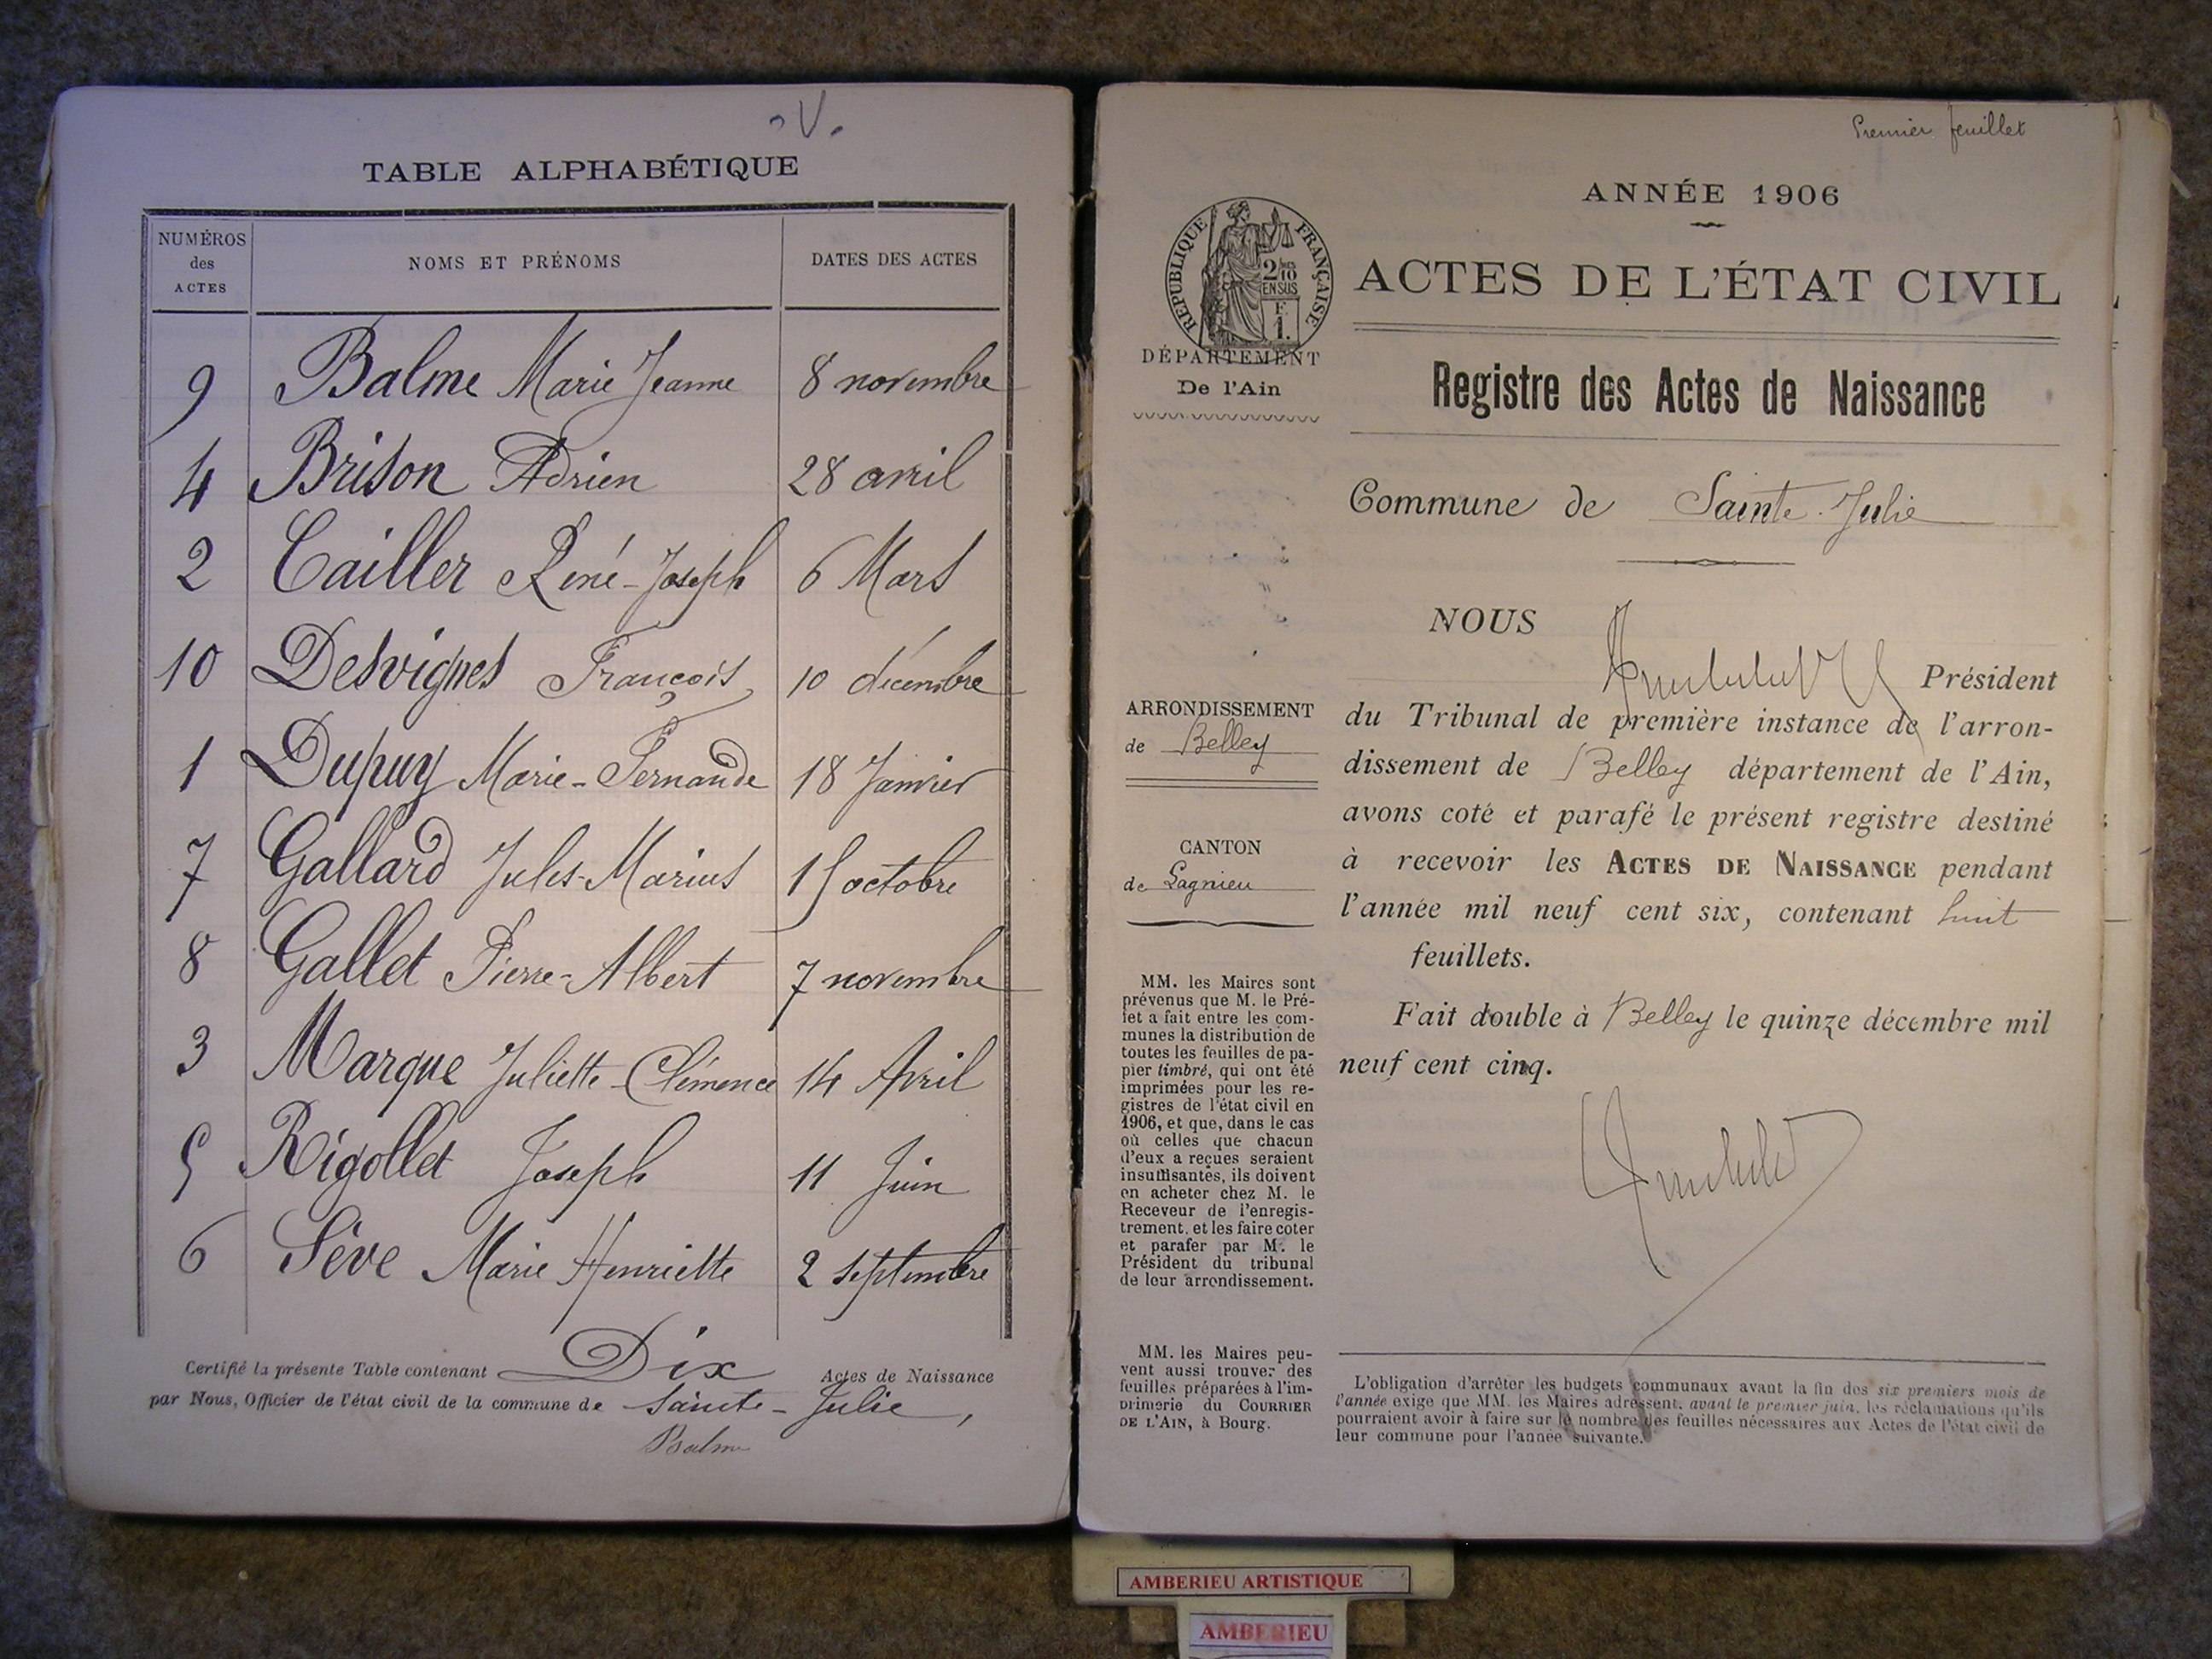 V.
TABLE ALPHABÉTIQUE
NUMÉROS
des
ACTES
NOMS ET PRÉNOMS
DATES DES ACTES
9 Balme Marie Jeanne 8 novembre
4 Brison Adrien 28 avril
2 Cailler Réné-Joseph 6 Mars
10 Desvignes François 10 décembre
1 Dupuy Marie-Fernande 18 Janvier
7 Gallard Jules-Marius 15 octobre
8 Gallet Pierre-Albert 7 novembre
3 Marque Juliette-Clémence 14 Avril
5 Rigollet Joseph 11 Juin
6 Sève Marie Henriette 2 septembre
Certifié la présente Table contenant Dix Actes de Naissance
par Nous, Officier de l'état civil de la commune de Sainte-Julie,
Balme
Premier feuillet
ANNÉE 1906
RÉPUBLIQUE FRANÇAISE
2/10
EN SUS
F.
1.
ACTES DE L'ÉTAT CIVIL
DÉPARTEMENT
De l'Ain
Registre des Actes de Naissance
Commune de Sainte-Julie
ARRONDISSEMENT
de Belley
CANTON
de Lagnieu
MM. les Maires sont
prévenus que M. le Pré-
fet a fait entre les com-
munes la distribution de
toutes les feuilles de pa-
pier timbré, qui ont été
imprimées pour les re-
gistres de l'état civil en
1906, et que, dans le cas
où celles que chacun
d'eux a reçues seraient
insuffisantes, ils doivent
en acheter chez M. le
Receveur de l'enregis-
trement, et les faire coter
et parafer par M. le
Président du tribunal
de leur arrondissement.
MM. les Maires peu-
vent aussi trouver des
feuilles préparées à l'im-
primerie du COURRIER
DE L'AIN, à Bourg.
NOUS
Président
du Tribunal de première instance de l'arron-
dissement de Belley département de l'Ain,
avons coté et parafé le présent registre destiné
à recevoir les ACTES DE NAISSANCE pendant
l'année mil neuf cent six, contenant huit
feuillets.
Fait double à Belley le quinze décembre mil
neuf cent cinq.
L'obligation d'arrêter les budgets communaux avant la fin des six premiers mois de
l'année exige que MM. les Maires adressent, avant le premier juin, les réclamations qu'ils
pourraient avoir à faire sur le nombre des feuilles nécessaires aux Actes de l'état civil de
leur commune pour l'année suivante.
AMBERIEU ARTISTIQUE
AMBERIEU